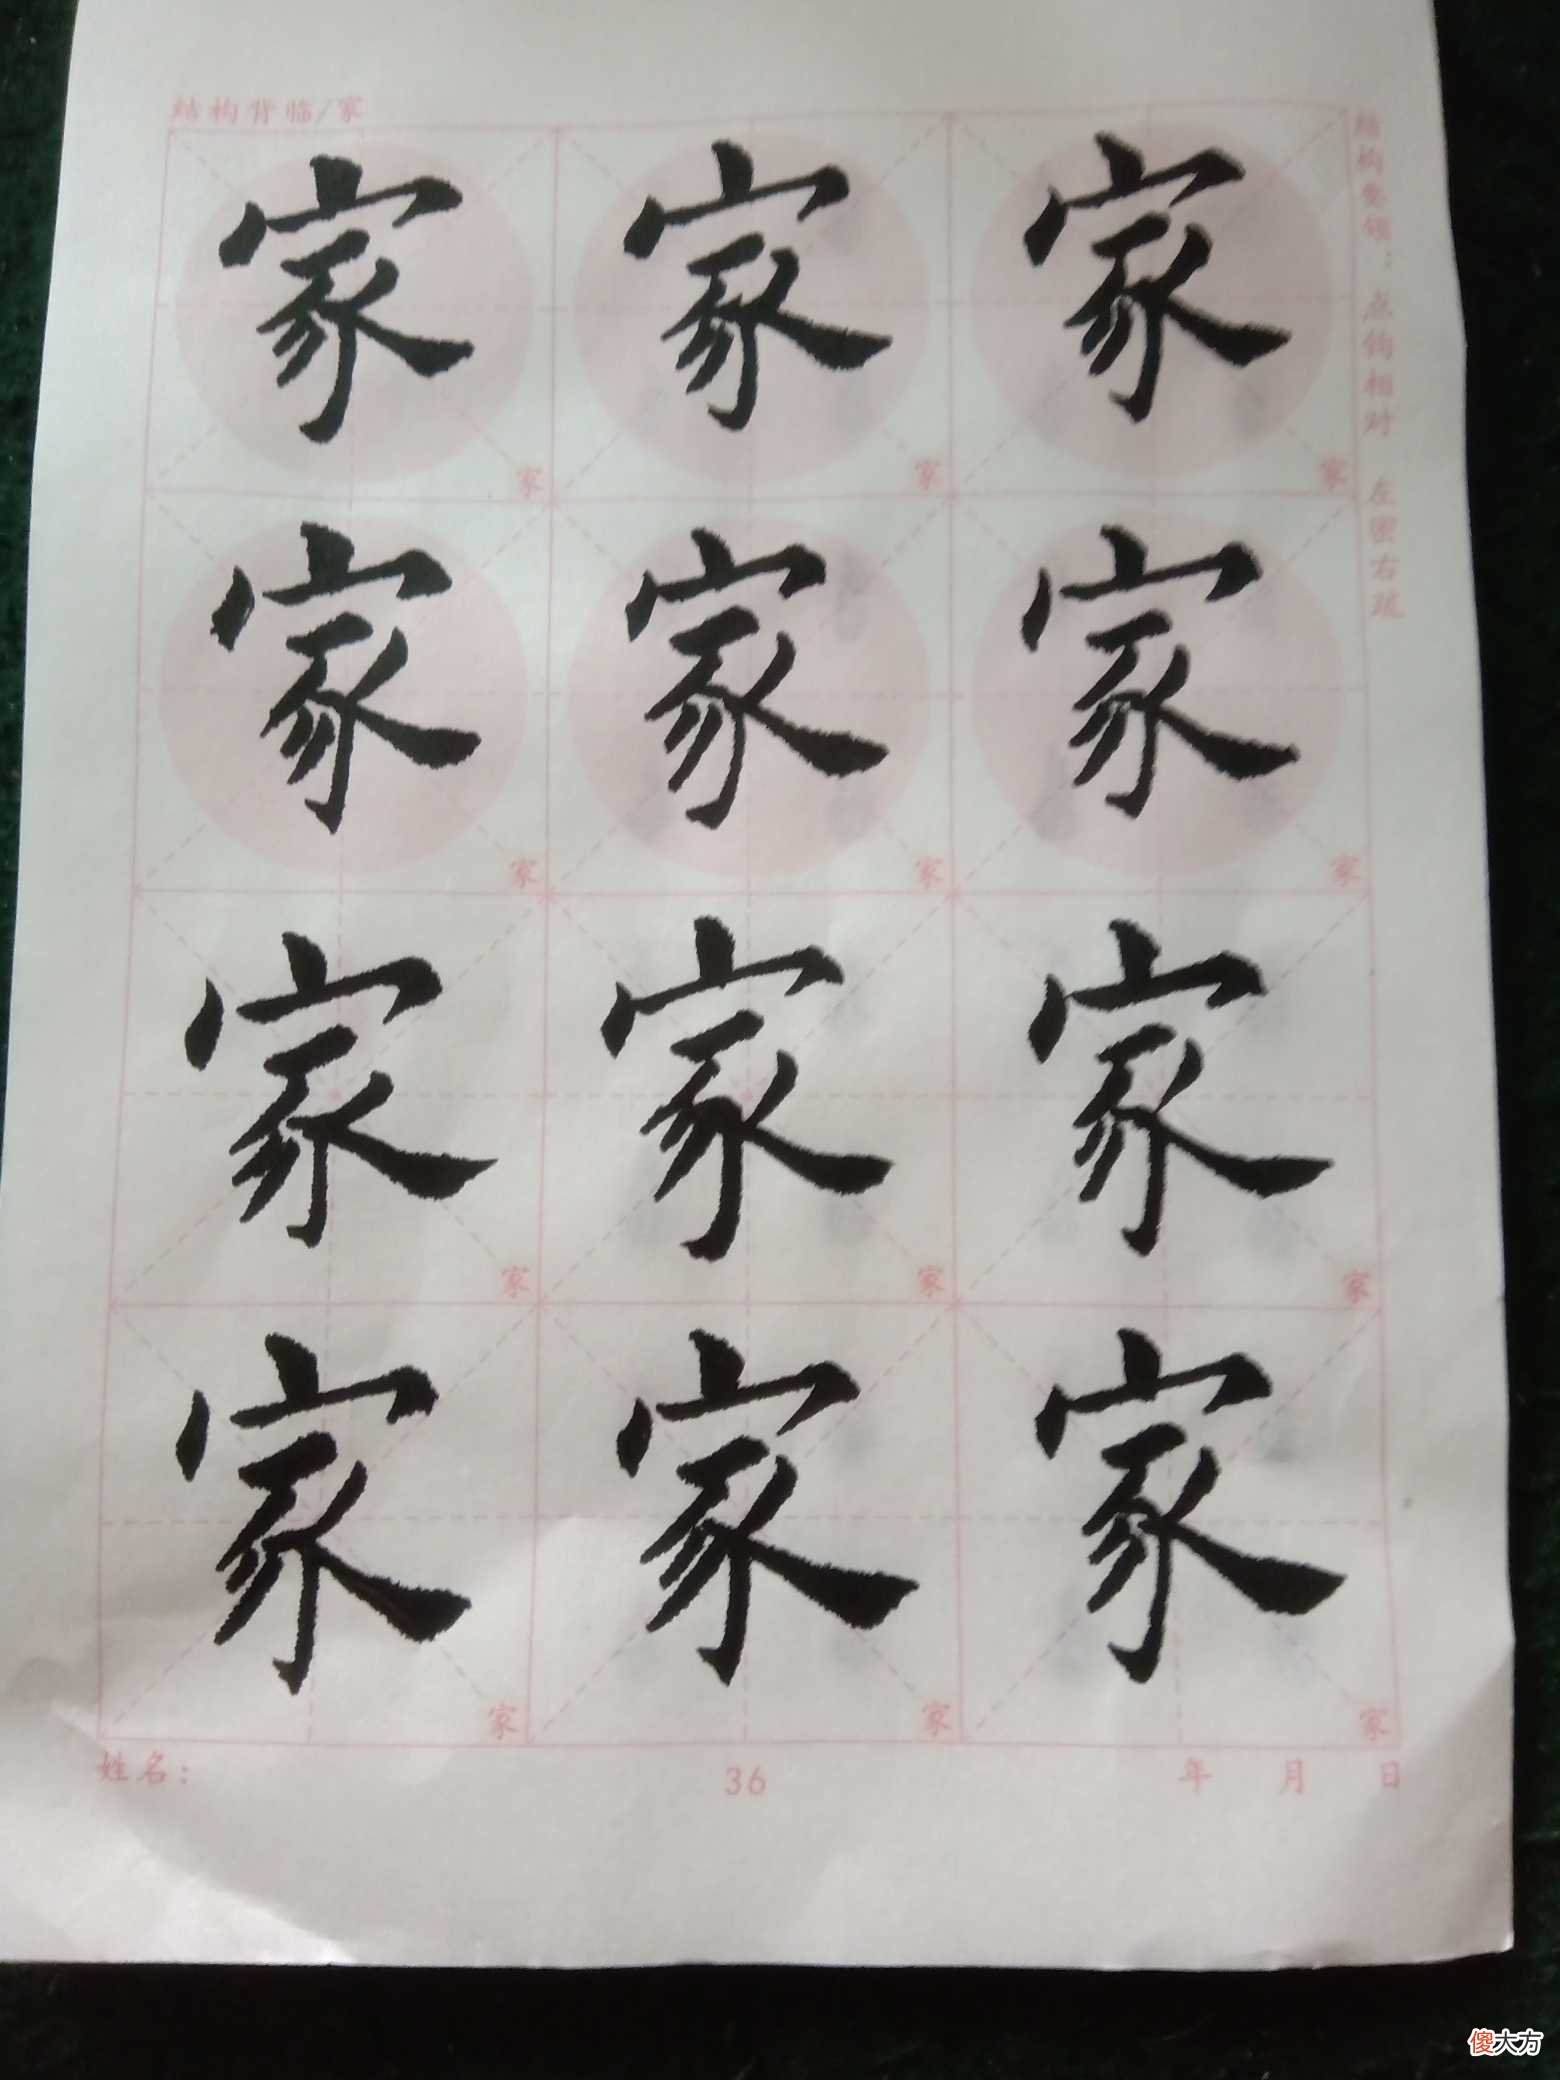 结构背临/家
结构要领：点钩相对 左密右疏
家 家 家
家 家 家
家 家 家
家 家 家
家 家 家
家 家 家
家 家 家
家 家 家
姓名：
36
年 月 日
傻大方